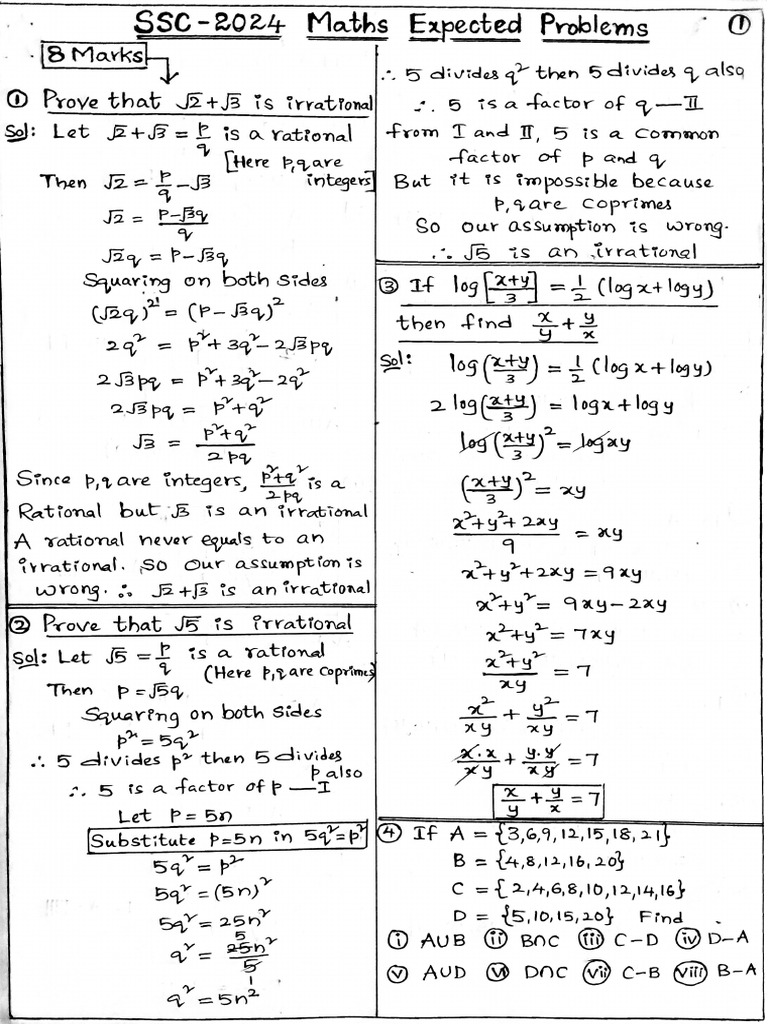 SSC-2024 Maths Expected Problems ①
8 Marks
① Prove that √2+√3 is irrational
Sol: Let √2+√3 = p/q is a rational
[Here p,q are integers]
Then √2 = p/q - √3
√2 = (p-√3q)/q
√2q = p-√3q
Squaring on both sides
(√2q)² = (p-√3q)²
2q² = p²+3q²-2√3pq
2√3pq = p²+3q²-2q²
2√3pq = p²+q²
√3 = (p²+q²)/2pq
Since p,q are integers, (p²+q²)/2pq is a
Rational but √3 is an irrational
A rational never equals to an
irrational. So our assumption is
wrong. ∴ √2+√3 is an irrational
② Prove that √5 is irrational
Sol: Let √5 = p/q is a rational
(Here p,q are coprimes)
Then p=√5q
Squaring on both sides
p²=5q²
∴ 5 divides p² then 5 divides
p also
∴ 5 is a factor of p — I
Let p=5n
Substitute p=5n in 5q²=p²
5q² = p²
5q² = (5n)²
5q² = 25n²
q² = 25n²/5
5
1
q² = 5n²
∴ 5 divides q² then 5 divides q also
∴ 5 is a factor of q — II
from I and II, 5 is a common
factor of p and q
But it is impossible because
p,q are coprimes
So our assumption is wrong.
∴ √5 is an irrational
③ If log[(x+y)/3] = 1/2 (logx+logy)
then find x/y + y/x
Sol: log((x+y)/3) = 1/2 (logx+logy)
2 log((x+y)/3) = logx+logy
log((x+y)/3)² = logxy
((x+y)/3)² = xy
(x²+y²+2xy)/9 = xy
x²+y²+2xy = 9xy
x²+y² = 9xy-2xy
x²+y² = 7xy
(x²+y²)/xy = 7
x²/xy + y²/xy = 7
x.x/xy + y.y/xy = 7
x/y + y/x = 7
④ If A = {3,6,9,12,15,18,21}
B = {4,8,12,16,20}
C = {2,4,6,8,10,12,14,16}
D = {5,10,15,20} Find
ⓘ A∪B ⓘⓘ B∩C ⓘⓘⓘ C-D ⓘⓥ D-A
ⓥ A∪D ⓥⓘ D∩C ⓥⓘⓘ C-B ⓥⓘⓘⓘ B-A